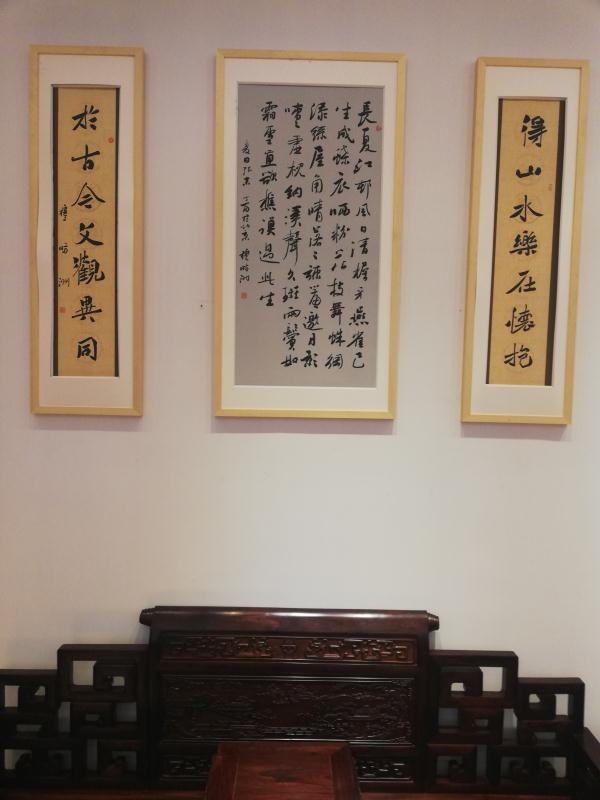 得山水樂在懷抱
長夏江邨風日清檐牙燕雀已
生成蝶衣晒粉花枝舞蛛網
添絲屋角晴落々疏簾邀月影
嘈々虛枕納溪聲久斑兩鬢如
霜雪直欲樵漁過此生
夏日張耒 丁酉於北京
於古今文觀異同